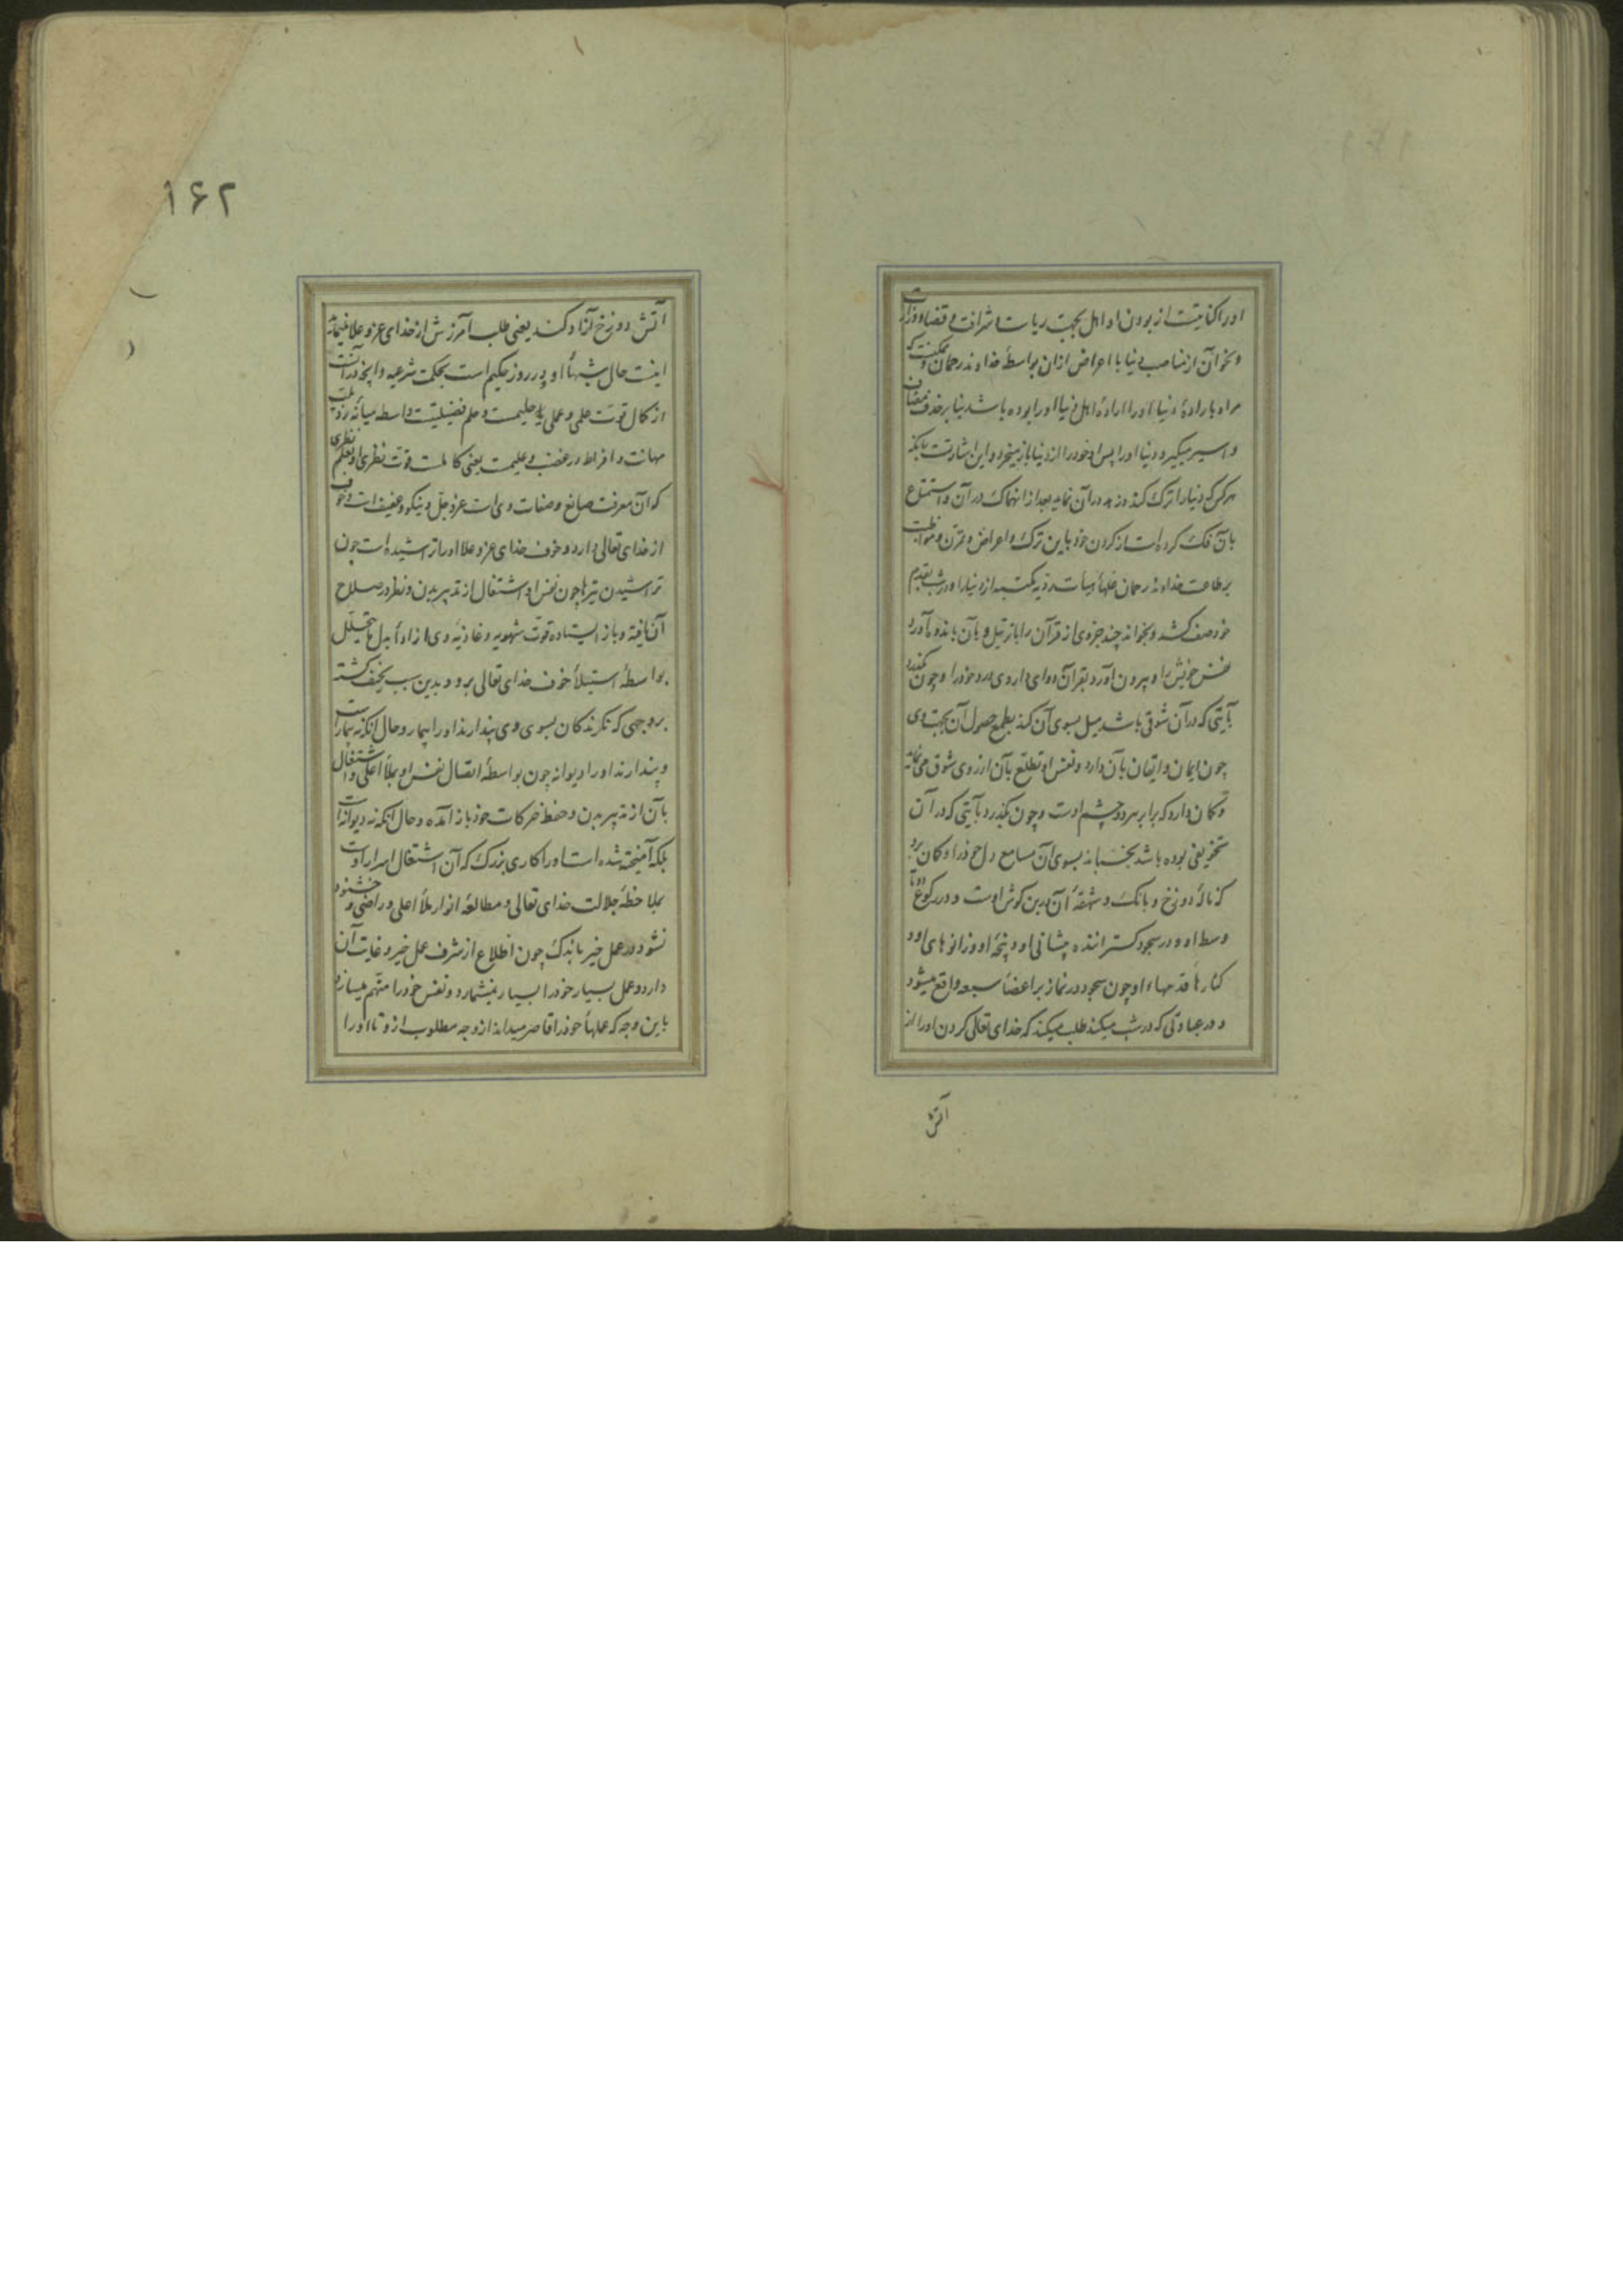 او را کنایتست از بودن او اهل بجهت ریاست و شرافت و قضا و وزارت
و نحو آن از مناصب دنیا با اعراض ازان بواسطهٔ خداوند رحمان و ممکنست که
مراد بارادهٔ دنیا او را ارادهٔ اهل دنیا او را بوده باشد بنا بر حذف مضاف
و اسیر میگیرد دنیا او را پس او خود را از دنیا باز میخرد و این اشارتست بانکه
هر کس که دنیا را ترک کند و زهد در آن نماید بعد از انهماک در آن و استمتاع
بآن فک کرده است از کردن خود باین ترک و اعراض و تمرن و مواظبت
بر طاعت خداوند رحمان هیأت ردیه مکتسبه از دنیا را و در شب بقدم
خود صف کشد و بخواند چند جزوی از قرآن را با ترتیل و بآن باندوه آورد
نفس خویش را و بیرون آورد بقرآن دوای داروی درد خود را و چون بگذرد
بآیتی که در آن شوقی باشد میل بسوی آن کند بطمع حصول آن بجهت وی
چون ایمان و ایقان بآن دارد و نفس او تطلع بآن ارزوی شوق می نماید
و کمان دارد که برابر هر دو چشم اوست و چون بگذرد بآیتی که در آن
تخویفی بوده باشد بخسباند بسوی آن مسامع دل خود را و کمان برد
که نالهٔ دوزخ و بانک و شهقهٔ آن در بن گوش اوست و در رکوع دو تا
وسط او و در سجود گستراننده پیشانی او و پنجهٔ او و زانوهای او و
کنارهاء قدمهاء او چون سجود در نماز بر اعضأ سبعه واقع میشود
و در عبادتی که در شب میکند طلب میکند که خدای تعالی گردن او را از
آتش
۱۶۲
آتش دوزخ آزاد کند یعنی طلب آمرزش از خدای عز و علا مینماید
اینست حال شبهأ او و در روز حکیم است بحکمت شرعیه و آنچه در آنست
از کمال قوت علمی و عملی و حلیمست و حلم فضیلتیست واسطه میانهٔ رذیلت
مهانت و افراط در غضب و علیمست یعنی کاملست قوت نظری او بعلم نظری
که آن معرفت صانع و صفات وی است عز و جل و نیکو و عفیف است و خوف
از خدای تعالی دارد و خوف خدای عز و علا او را تراشیده است چون
تراشیدن تیرها چون نفس او اشتغال از تدبیر بدن و نظر در صلاح
آن یافته و باز ایستاده قوت شهویه و غاذیهٔ وی از ادأ بدل ما یتحلل
بواسطهٔ استیلأ خوف خدای تعالی برو و بدین سبب نحیف گشته
بروجهی که نگرندگان بسوی وی پندارند او را بیمار و حال انکه نه بیمارست
و پندارند او را دیوانه چون بواسطهٔ اتصال نفس او بملأ اعلی و اشتغال
بآن از تدبیر بدن و حفظ حرکات خود باز آمده و حال انکه نه دیوانه است
بلکه آمیخته شده است او را کاری بزرگ که آن اشتغال اسرار اوست
بملاحظهٔ جلالت خدای تعالی و مطالعهٔ انوار ملأ اعلی و راضی و خشنود
نشود در عمل خیر باندک چون اطلاع از شرف عمل خیر و غایت آن
دارد و عمل بسیار خود را بسیار نمیشمارد و نفس خود را متهم میسازد
باین وجه که عملهأ خود را قاصر میداند از وجه مطلوب ازو تا او را